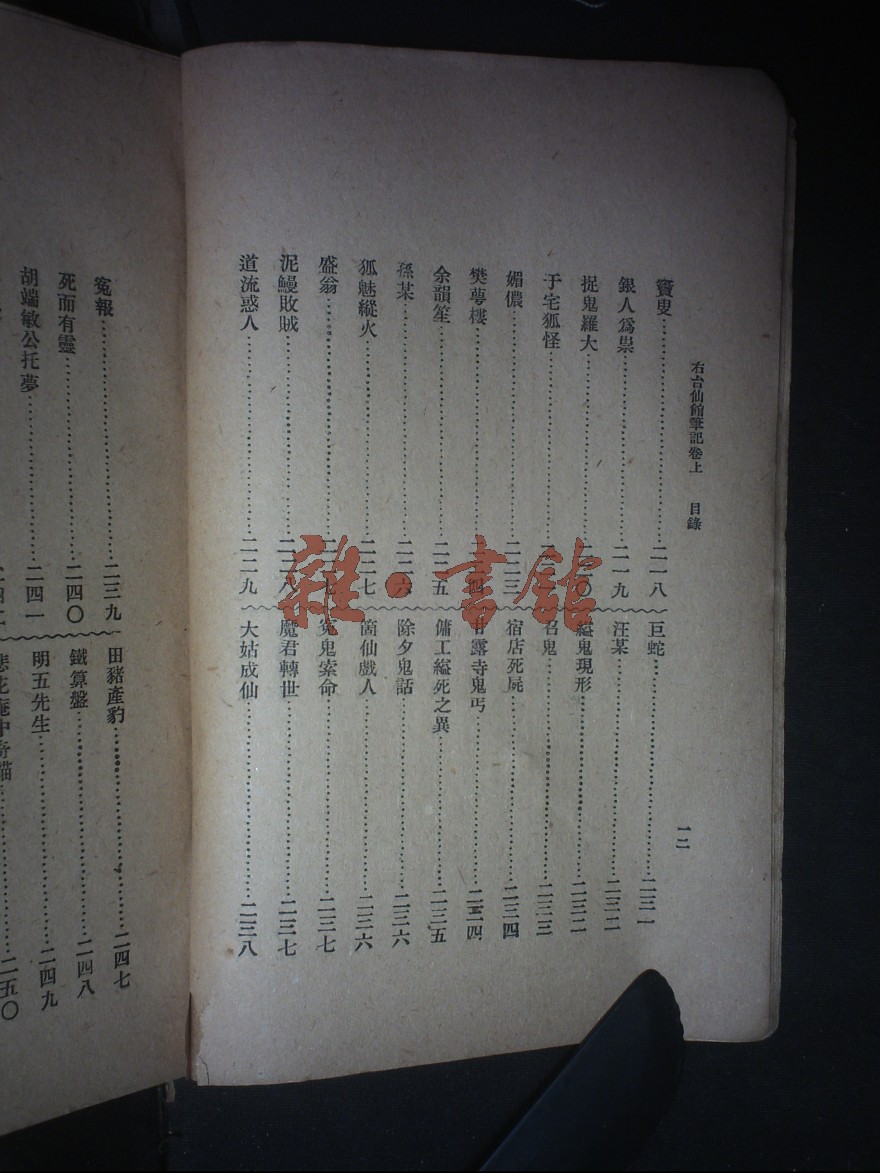 右台仙館筆記卷上 目錄 一二
竇叟……二一八
銀人爲祟……二一九
捉鬼羅大……二二〇
于宅狐怪……
媚儂……二二三
樊萼樓……二二四
余韻笙……二二五
孫某……二二六
狐魅縱火……二二七
盛翁……二二七
泥鰻敗賊……二二八
道流惑人……二二九
巨蛇……二三一
汪某……二三二
縊鬼現形……二三二
召鬼……二三三
宿店死屍……二三四
甘露寺鬼丐……二三四
傭工縊死之異……二三五
除夕鬼話……二三六
箇仙戲人……二三六
冤鬼索命……二三七
魔君轉世……二三七
大姑成仙……二三八
寃報……二三九
死而有靈……二四〇
胡端敏公托夢……二四一
田豬產豹……二四七
鐵算盤……二四八
明五先生……二四九
花庵中奇貓……二五〇
雜·書館